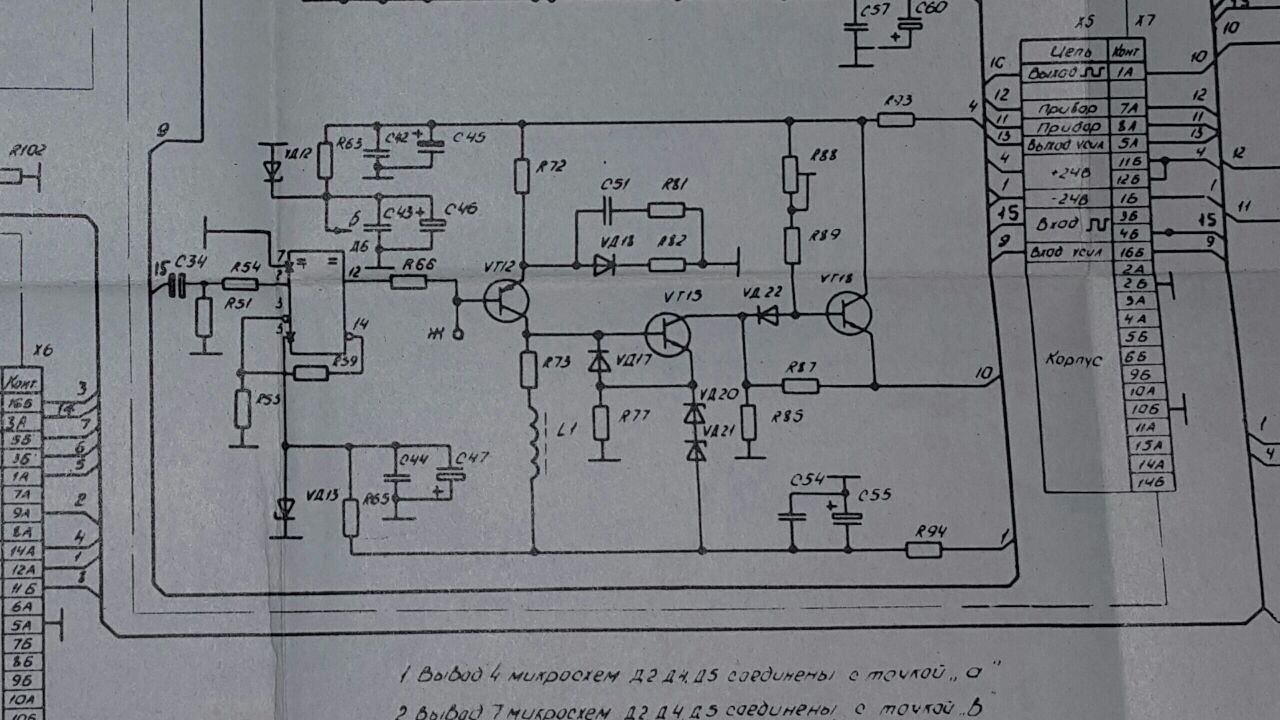 C57
C60
15
10
X5
X7
Цепь Конт
Выход 1А
Прибор 7А
Прибор 8А
Выход усил 5А
+24В 11Б
12Б
-24В 1Б
Вход 3Б
4Б
Вход усил 16Б
2А
2Б
3А
4А
5Б
6Б
9Б
10А
10Б
11А
15А
14А
14Б
Корпус
10
12
11
13
4
1
15
9
10
12
11
13
4
1
15
9
12
11
1
4
9
R102
VД12
R63
C42
+
C45
R72
R88
R93
4
C43
+
C46
Б
Д6
C51
R81
VД18
R82
R89
15
C34
R54
R51
7
2
3
5
=
=
12
14
R66
Ж
VT12
VT15
VД22
VT18
R59
R55
R73
VД17
R77
L1
VД20
VД21
R87
R85
10
VД13
R65
C44
C47
+
C54
+
C55
R94
1
X6
Конт
16Б
3А
5Б
3Б
1А
7А
9А
8А
14А
12А
11Б
6А
5А
7Б
8Б
9Б
10А
10Б
3
14
7
6
5
2
4
1
1 Вывод 4 микросхем Д2 Д4, Д5 соединены с точкой „а"
2 Вывод 7 микросхем Д2 Д4, Д5 соединены с точкой „В